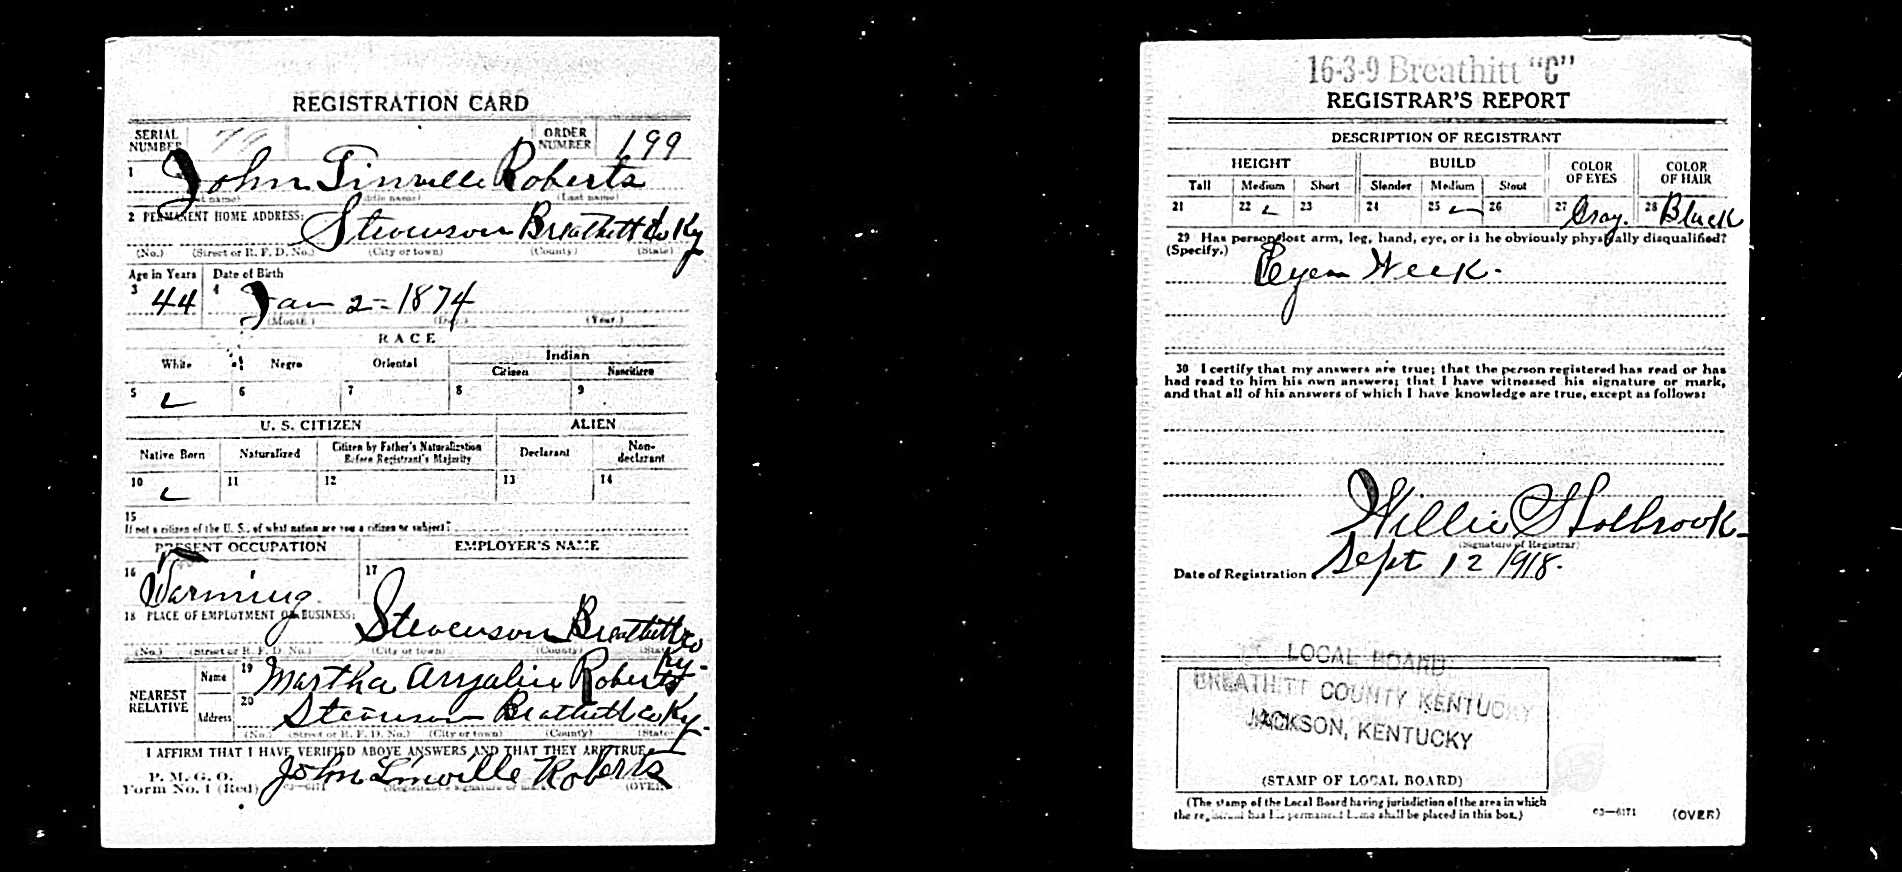 REGISTRATION CARD
SERIAL NUMBER
ORDER NUMBER 199
1 John Linville Roberts
(First name) (Middle name) (Last name)
2 PERMANENT HOME ADDRESS:
Stevenson Breathitt Co Ky
(No.) (Street or R. F. D. No.) (City or town) (County) (State)
Age in Years Date of Birth
3 44 4 Jan 2 = 1874
(Month.) (Day.) (Year.)
RACE
White Negro Oriental Indian
Citizen Noncitizen
5 6 7 8 9
U. S. CITIZEN ALIEN
Native Born Naturalized Citizen by Father's Naturalization Before Registrant's Majority Declarant Non-declarant
10 11 12 13 14
15
If not a citizen of the U. S., of what nation are you a citizen or subject?
PRESENT OCCUPATION EMPLOYER'S NAME
16 Farming 17
18 PLACE OF EMPLOYMENT OR BUSINESS:
Stevenson Breathitt co Ky.
(No.) (Street or R. F. D. No.) (City or town) (County) (State)
NEAREST RELATIVE
Name 19 Martha Roberts
Address 20 Stevenson Breathitt co Ky.
(No.) (Street or R. F. D. No.) (City or town) (County) (State)
I AFFIRM THAT I HAVE VERIFIED ABOVE ANSWERS AND THAT THEY ARE TRUE
P. M. G. O.
Form No. 1 (Red) 03—6171 John Linville Roberts
(Registrant's signature or mark) (OVER)
16-3-9 Breathitt "C"
REGISTRAR'S REPORT
DESCRIPTION OF REGISTRANT
HEIGHT BUILD COLOR OF EYES COLOR OF HAIR
Tall Medium Short Slender Medium Stout
21 22 23 24 25 26 27 Gray. 28 Black
29 Has person lost arm, leg, hand, eye, or is he obviously physically disqualified?
(Specify.)
Eyes Week.
30 I certify that my answers are true; that the person registered has read or has
had read to him his own answers; that I have witnessed his signature or mark,
and that all of his answers of which I have knowledge are true, except as follows:
Willie Holbrook
(Signature of Registrar)
Date of Registration Sept 12 1918.
LOCAL BOARD
BREATHITT COUNTY KENTUCKY
JACKSON, KENTUCKY
(STAMP OF LOCAL BOARD)
(The stamp of the Local Board having jurisdiction of the area in which
the registrant has his permanent home shall be placed in this box.)
03—6171 (OVER)